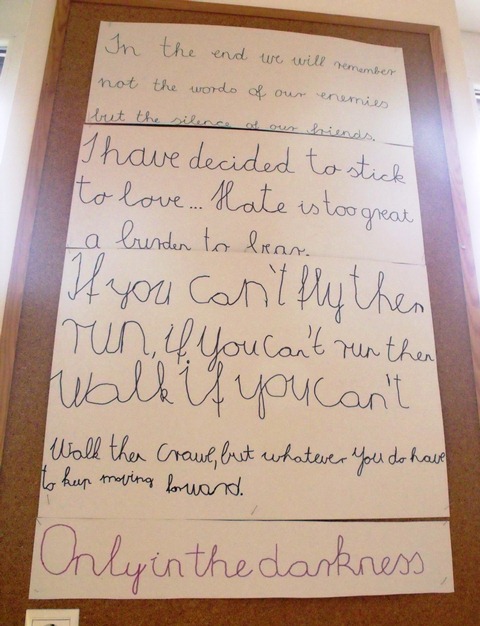 In the end we will remember
not the words of our enemies
but the silence of our friends.
I have decided to stick
to love... Hate is too great
a burden to bear.
If you can't fly then
run, if you can't run then
walk if you can't
Walk then crawl, but whatever you do have
to keep moving forward.
Only in the darkness